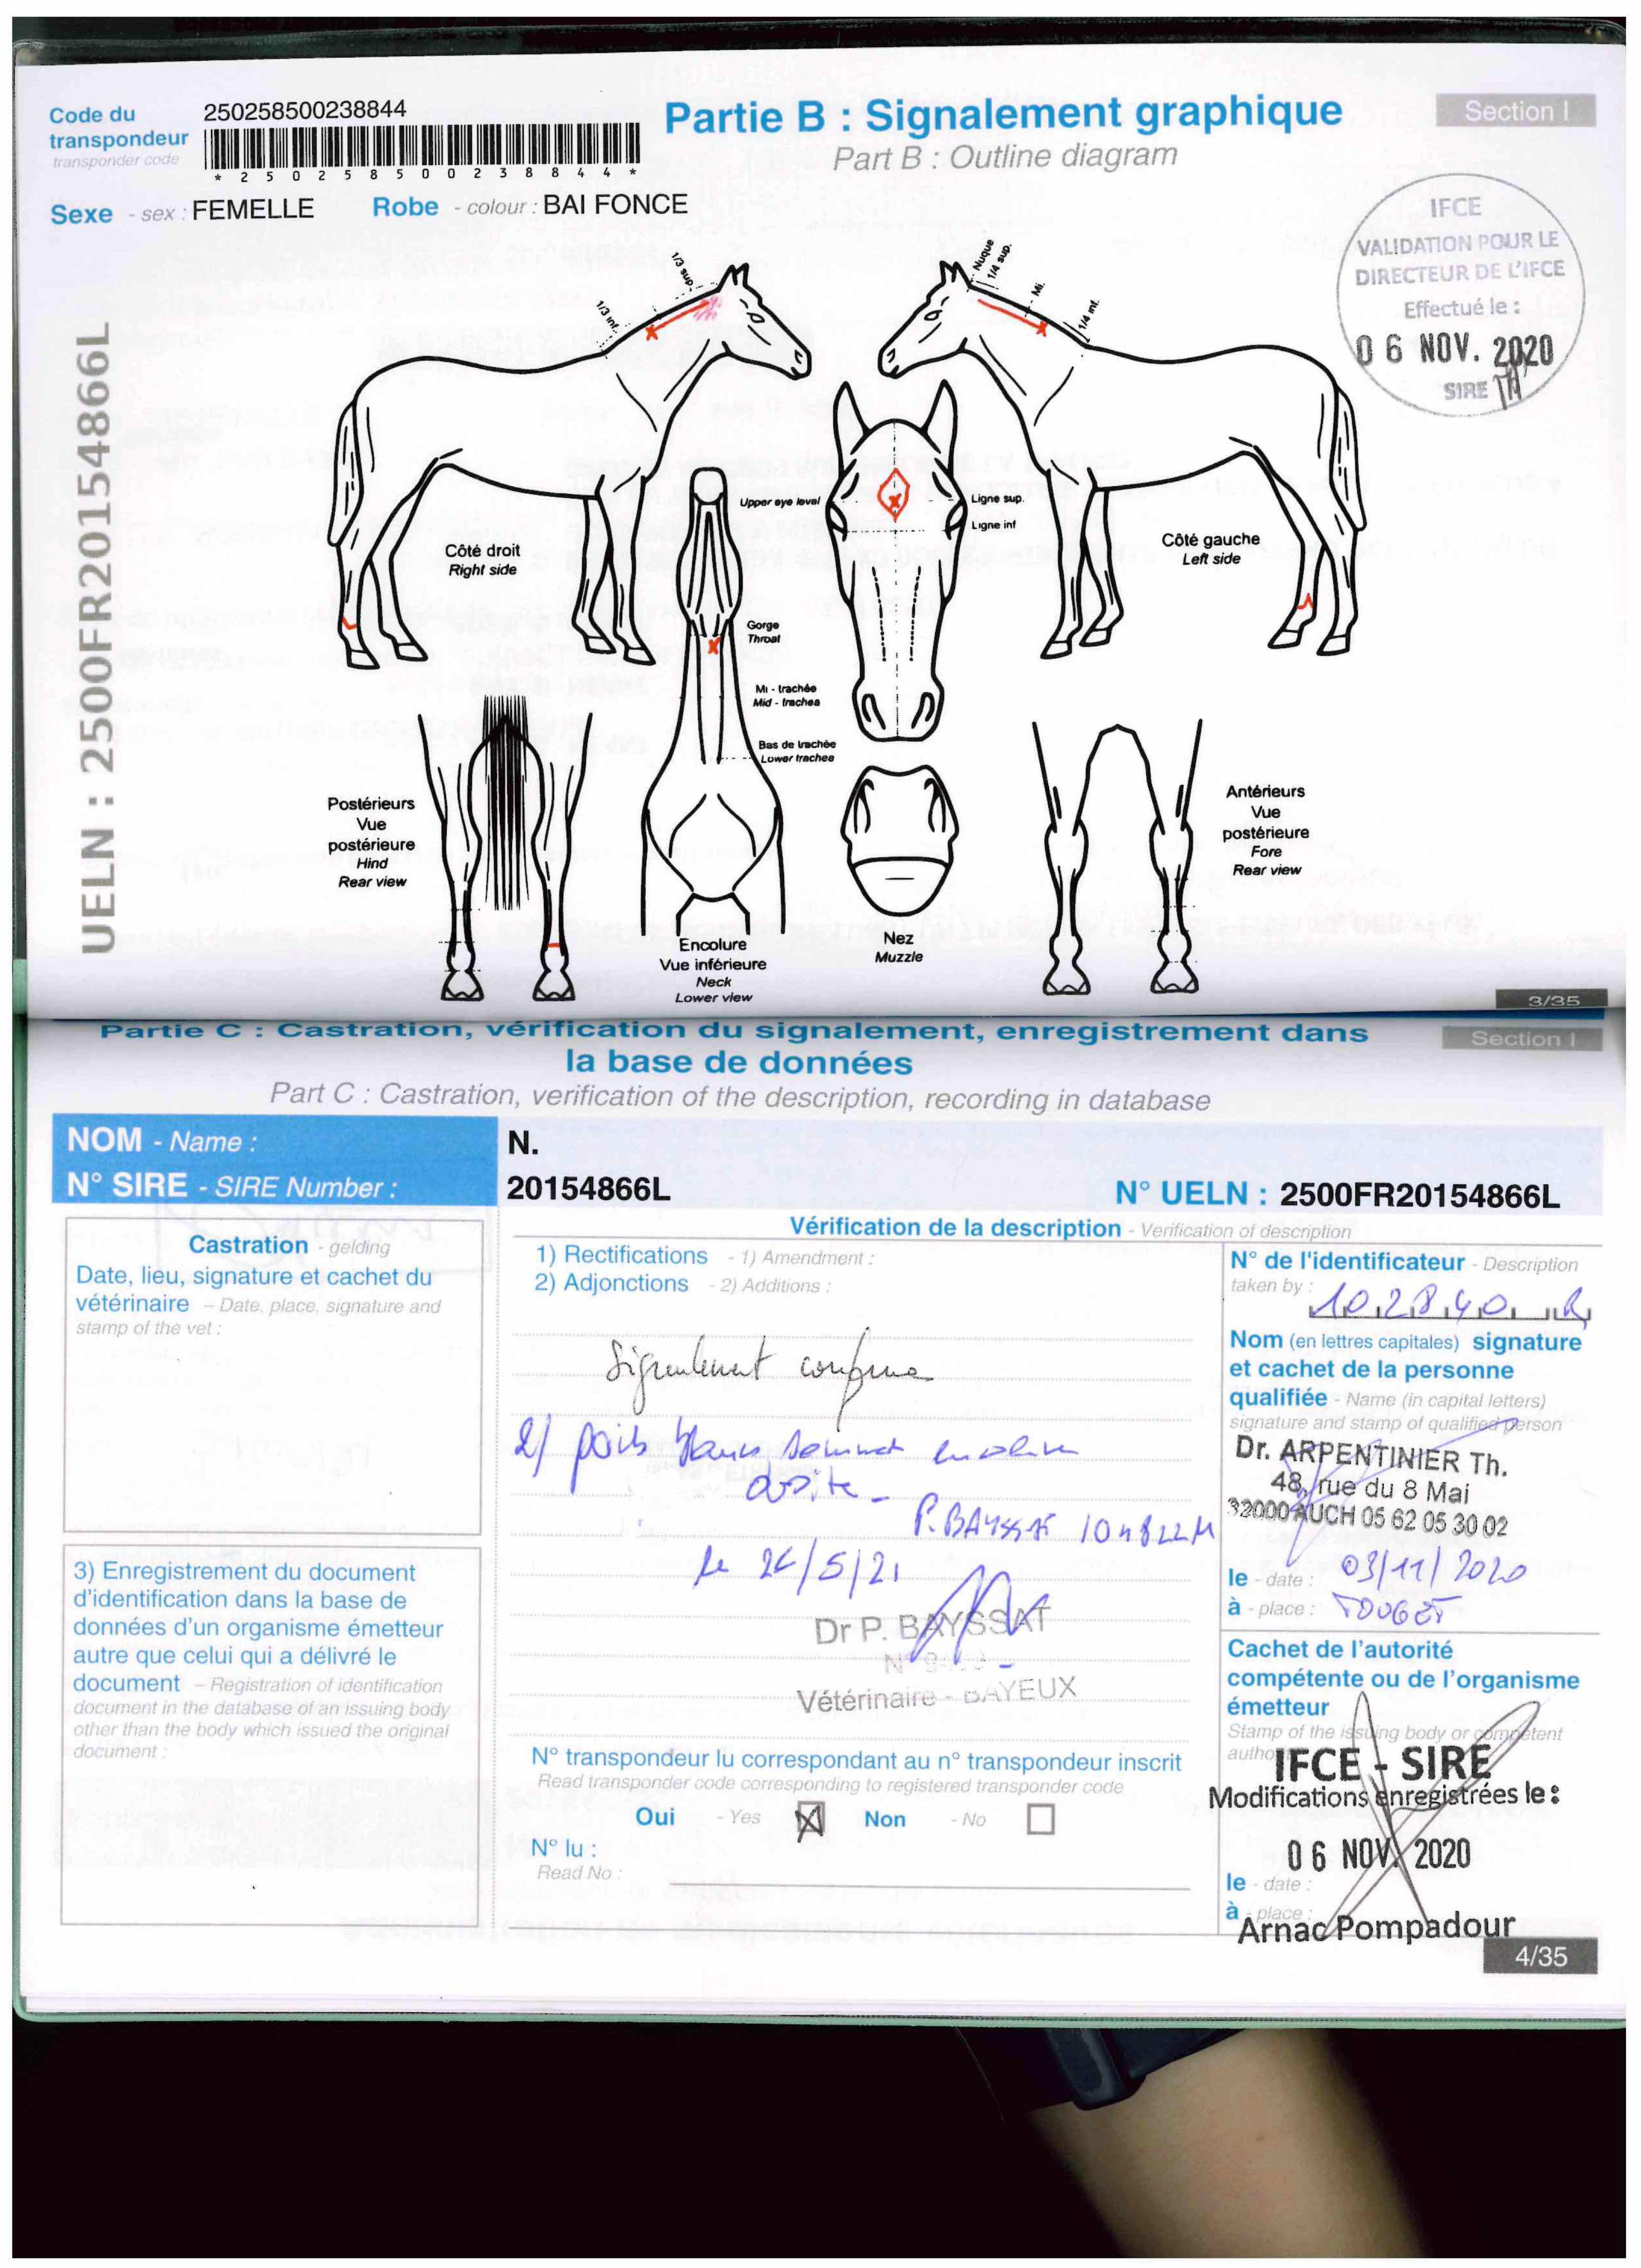 Code du
transpondeur
transponder code
250258500238844
* 2 5 0 2 5 8 5 0 0 2 3 8 8 4 4 *
Partie B : Signalement graphique
Part B : Outline diagram
Section I
Sexe - sex : FEMELLE
Robe - colour : BAI FONCE
IFCE
VALIDATION POUR LE
DIRECTEUR DE L'IFCE
Effectué le :
06 NOV. 2020
SIRE
UELN : 2500FR20154866L
1/3 inf.
1/3 sup.
Nuque
1/4 sup.
Mi.
1/4 inf.
Côté droit
Right side
Upper eye level
Ligne sup.
Ligne inf
Côté gauche
Left side
Gorge
Throat
Mi - trachée
Mid - trachea
Bas de trachée
Lower trachea
Postérieurs
Vue
postérieure
Hind
Rear view
Antérieurs
Vue
postérieure
Fore
Rear view
Encolure
Vue inférieure
Neck
Lower view
Nez
Muzzle
3/35
Partie C : Castration, vérification du signalement, enregistrement dans
la base de données
Section I
Part C : Castration, verification of the description, recording in database
NOM - Name :
N.
N° SIRE - SIRE Number :
20154866L
N° UELN : 2500FR20154866L
Castration - gelding
Date, lieu, signature et cachet du
vétérinaire - Date, place, signature and
stamp of the vet :
3) Enregistrement du document
d'identification dans la base de
données d'un organisme émetteur
autre que celui qui a délivré le
document - Registration of identification
document in the database of an issuing body
other than the body which issued the original
document :
Vérification de la description - Verification of description
1) Rectifications - 1) Amendment :
2) Adjonctions - 2) Additions :
Signalement conforme
2/ poils blancs sommet encolure
droite -
P. BAYSSAT 104822M
le 26/5/21
Dr P. BAYSSAT
Vétérinaire - BAYEUX
N° transpondeur lu correspondant au n° transpondeur inscrit
Read transponder code corresponding to registered transponder code
Oui - Yes
Non - No
N° lu :
Read No :
N° de l'identificateur - Description
taken by :
102840 R
Nom (en lettres capitales) signature
et cachet de la personne
qualifiée - Name (in capital letters)
signature and stamp of qualified person
Dr. ARPENTINIER Th.
48, rue du 8 Mai
32000 AUCH 05 62 05 30 02
le - date : 03/11/2020
à - place : TOUGET
Cachet de l'autorité
compétente ou de l'organisme
émetteur
Stamp of the issuing body or competent
IFCE - SIRE
Modifications enregistrées le :
06 NOV. 2020
le - date :
à - place :
Arnac Pompadour
4/35